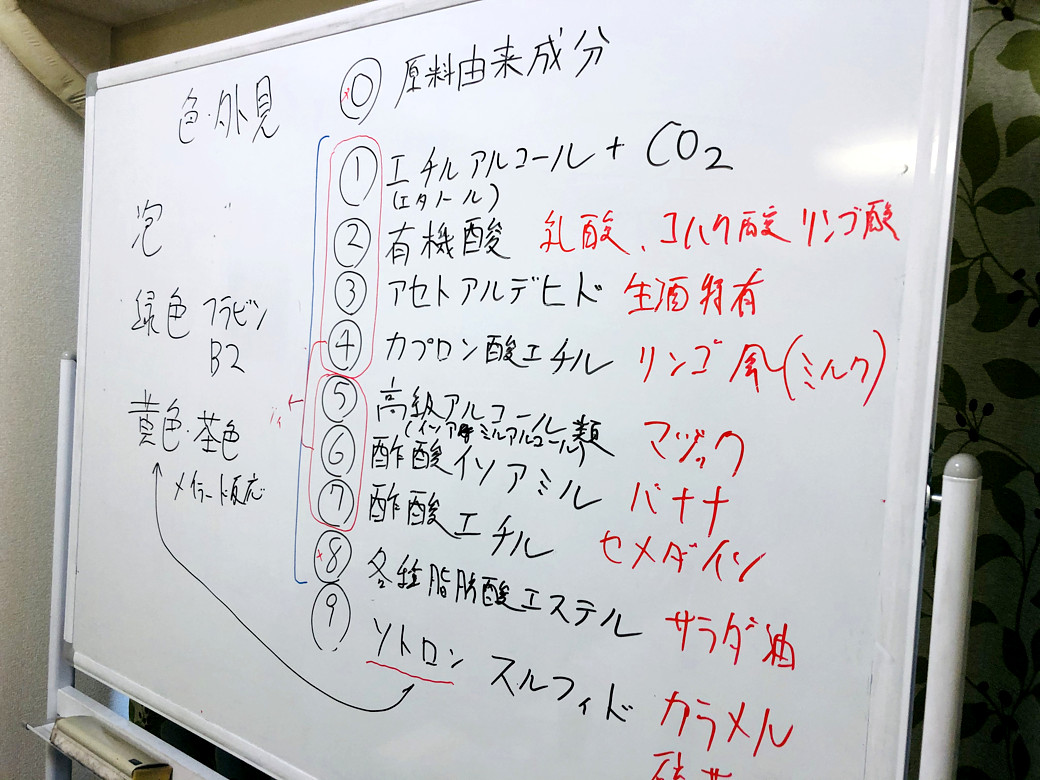 色・外見
泡
緑色 フラビン
B2
黄色・茶色
メイラード反応
⓪ 原料由来成分
① エチルアルコール + CO2
(エタノール)
② 有機酸 乳酸、コハク酸 リンゴ酸
③ アセトアルデヒド 生酒特有
④ カプロン酸エチル リンゴ風(ミルク)
⑤ 高級アルコール類 マジック
(イソアミルアルコール)
⑥ 酢酸イソアミル バナナ
⑦ 酢酸エチル セメダイン
⑧ 各種脂肪酸エステル サラダ油
⑨ ソトロン スルフィド カラメル